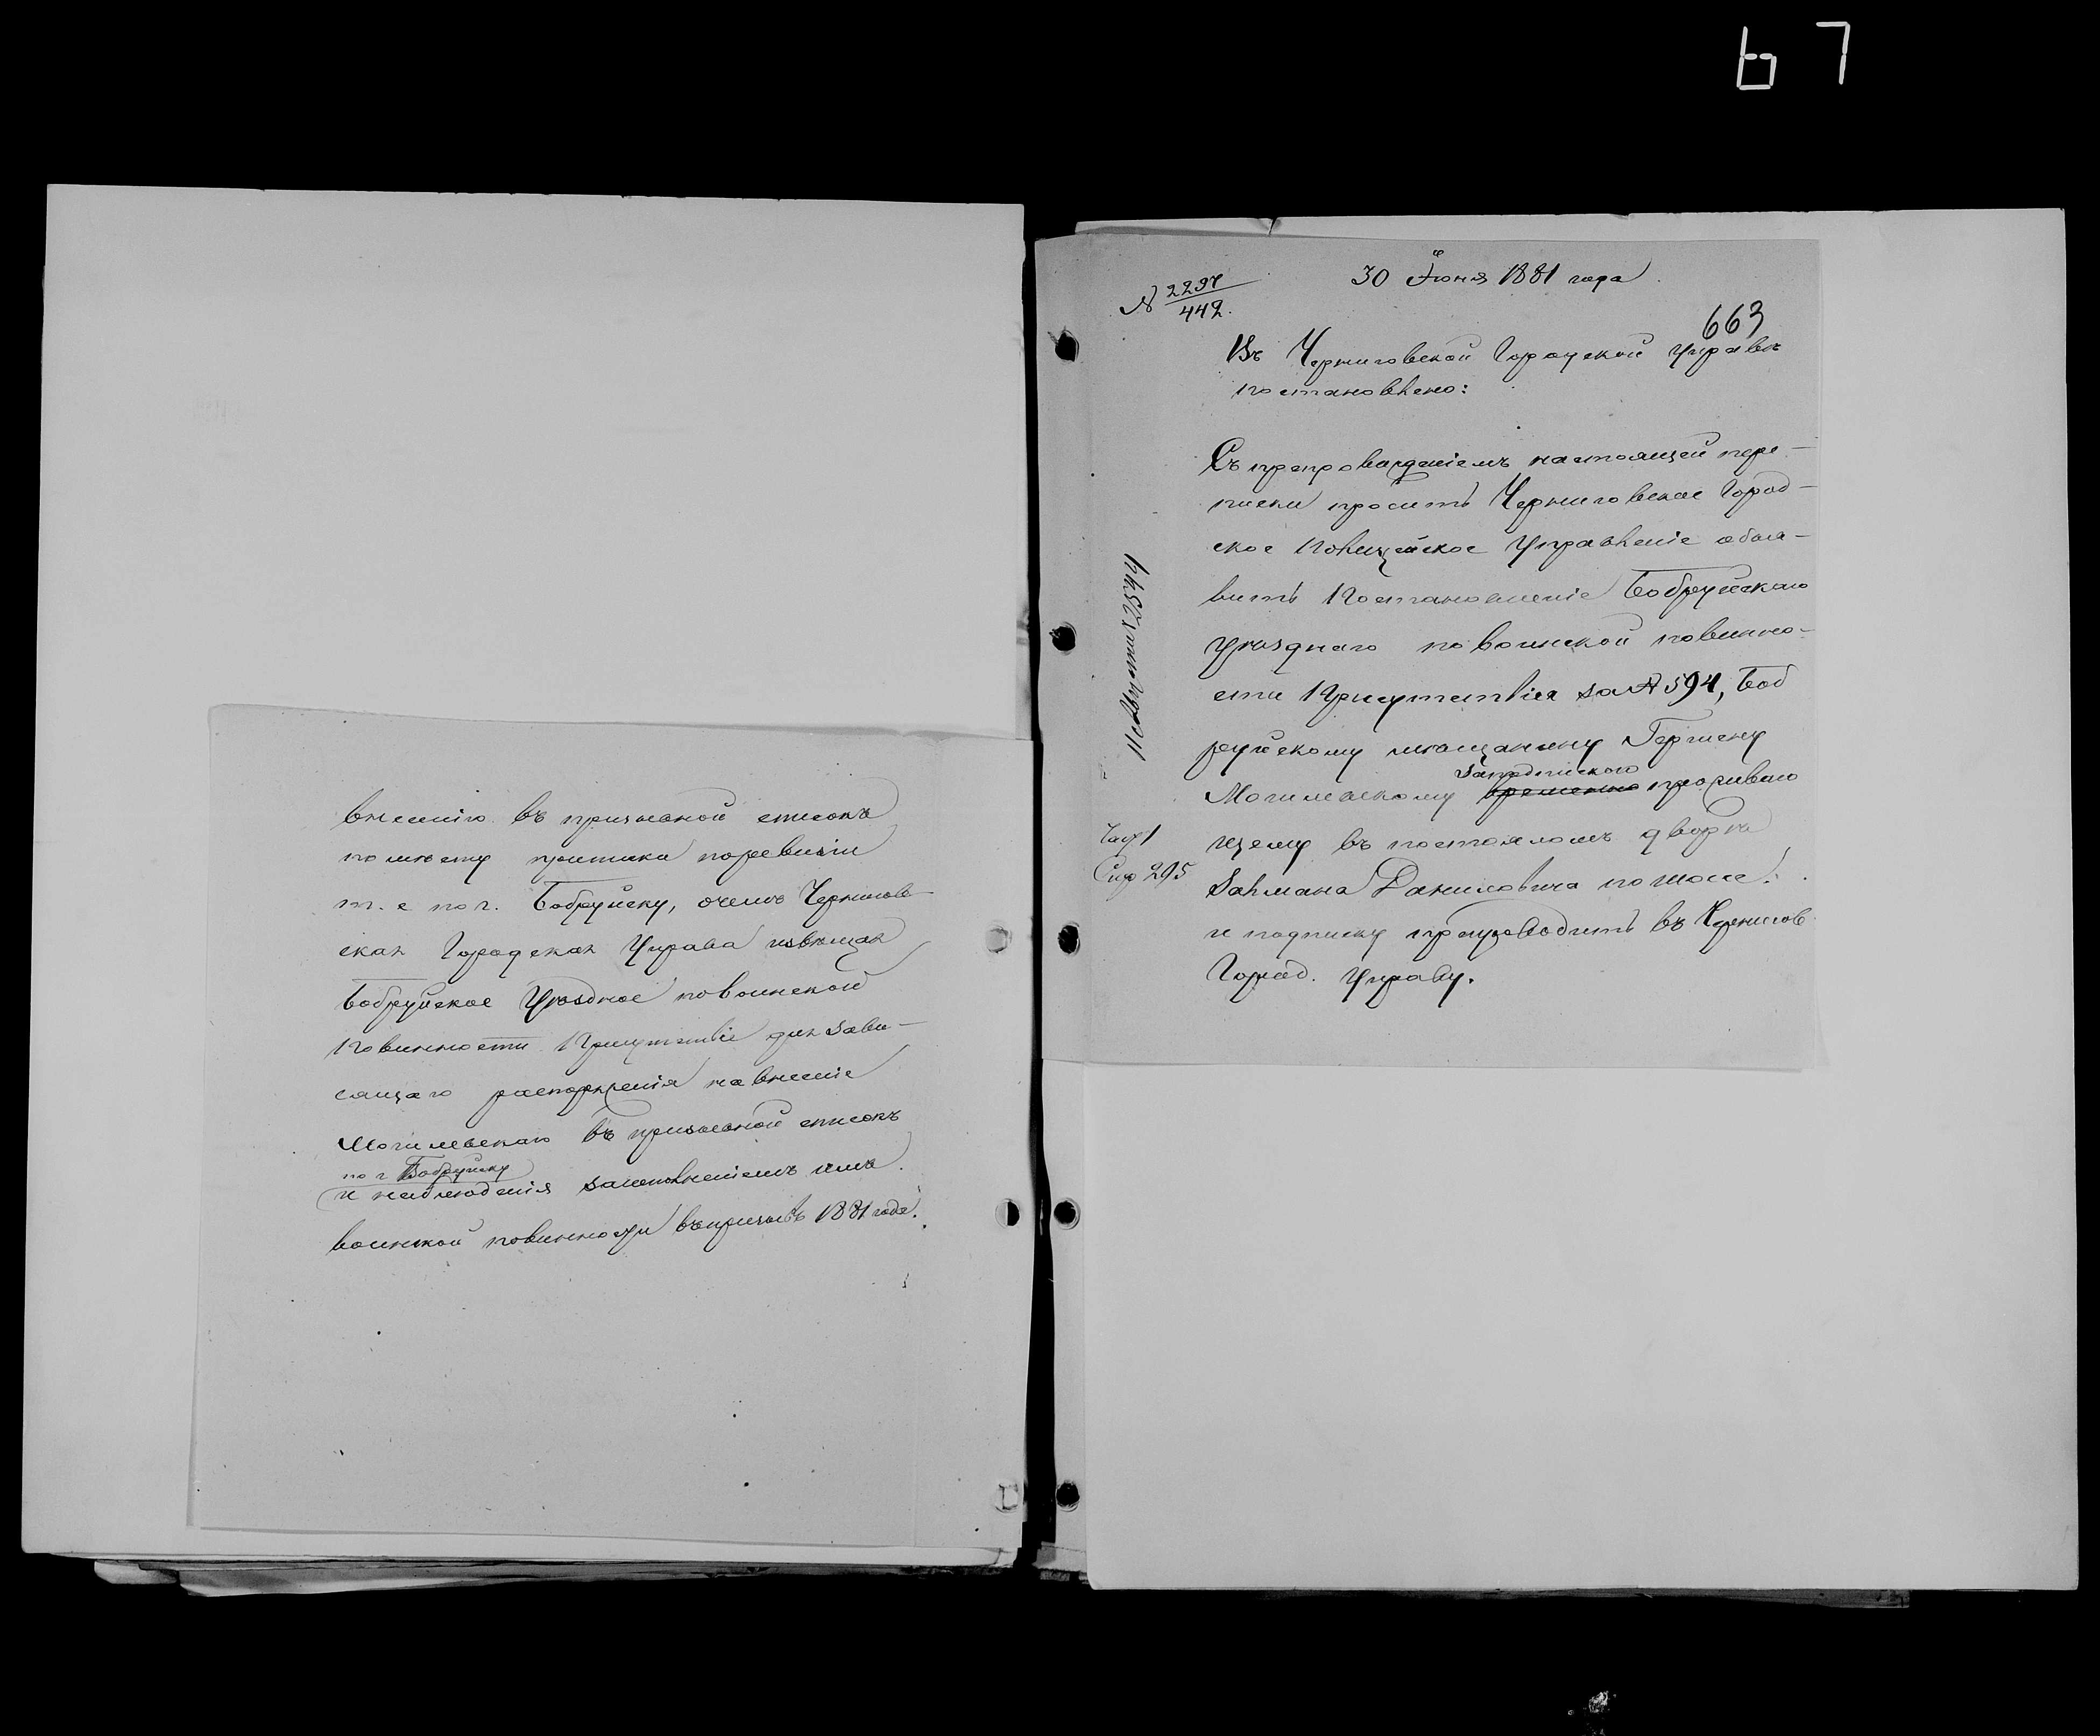 67
внесенію въ призывной списокъ
по мѣсту приписки по ревизіи
т. е по г. Бобруйску, о чемъ Чернигов-
ская Городская Управа извѣщая
Бобруйское Уѣздное по воинской
Повинности Присутствіе для зави-
сящаго распоряженія на внесеніе
Могилевскаго въ призывной списокъ
по г Бобруйску
и наблюденія за исполненіемъ имъ
воинской повинности въ призывъ 1881 года.
30 Іюня 1881 года
№ 2297/442.
663
Въ Черниговской Городской Управѣ
постановлено:
Съ препровожденіемъ настоящей пере-
писки просить Черниговское Город-
ское Полицейское Управленіе объя-
вить Постановленіе Бобруйскаго
Уѣзднаго по воинской повинно-
сти Присутствія за № 594, Боб
руйскому мѣщанину Гершену
Могилевскому временно проживаю
щему въ постояломъ дворѣ
Залмана Даниловича по шоссе
и подписку препроводить въ Чернигов
Город. Управу.
№ 2544
295